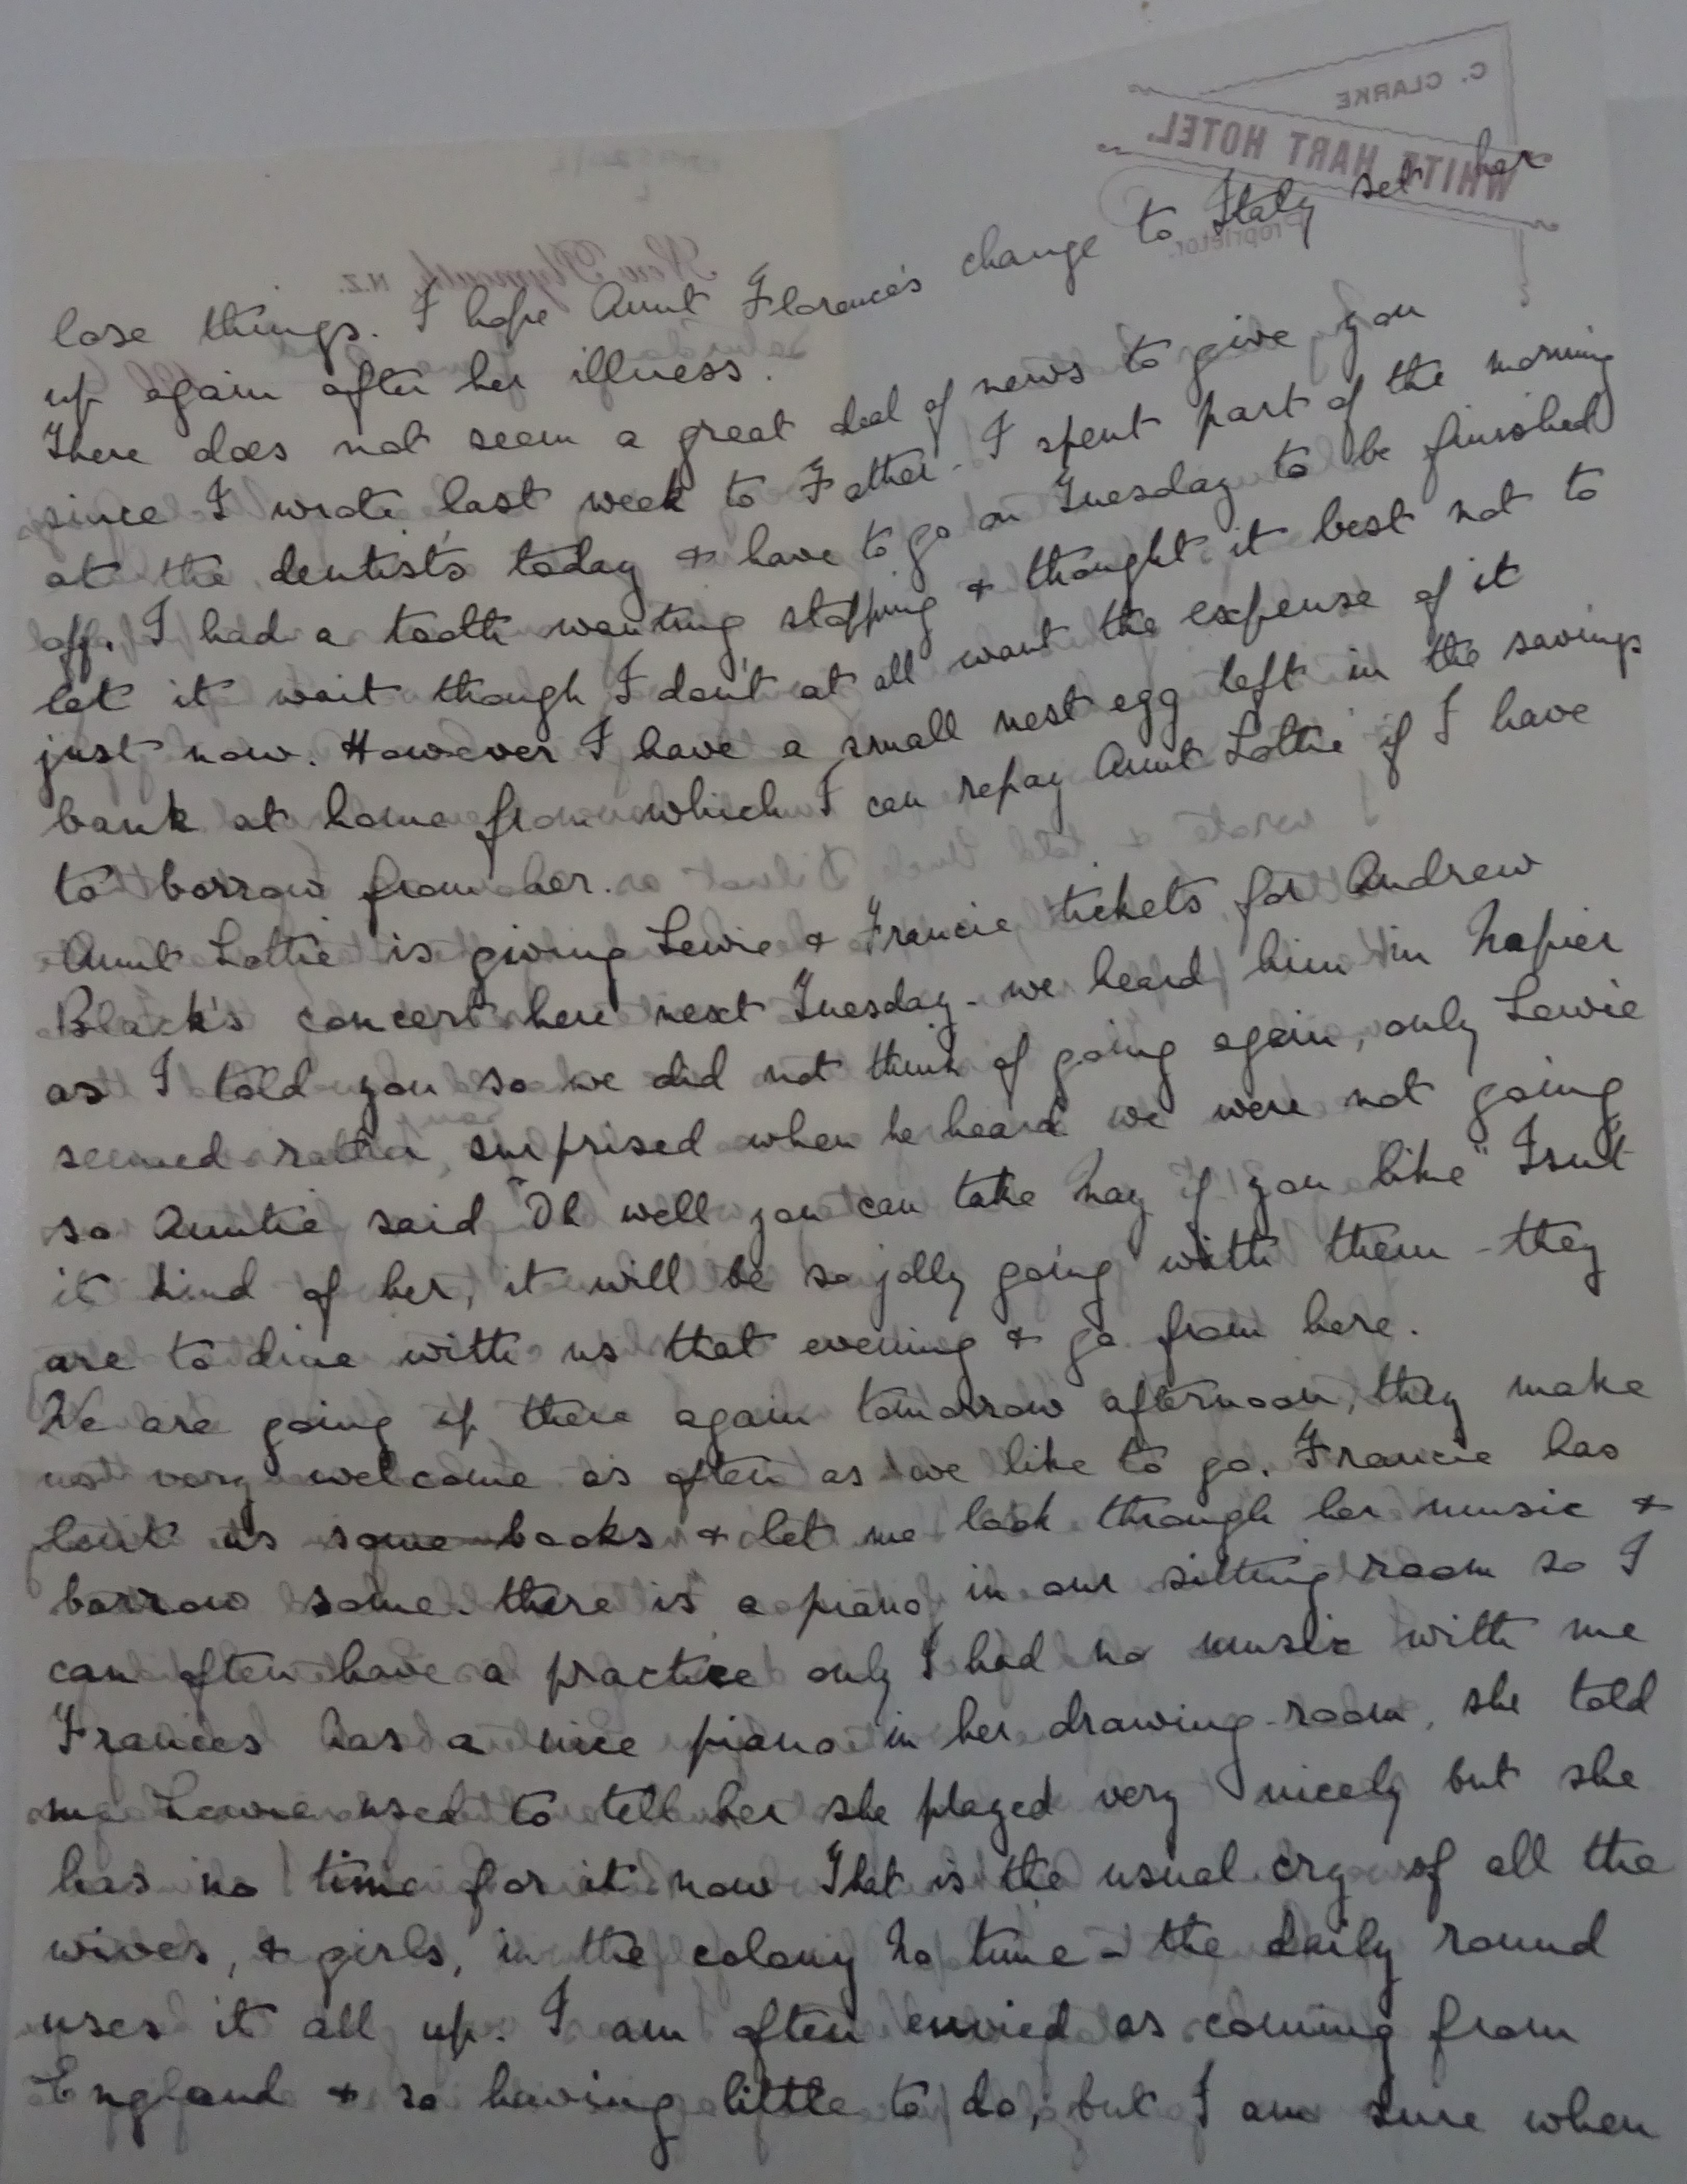 C. CLARKE
WHITE HART HOTEL.
Proprietor.
New Plymouth, N.Z.
lose things. I hope Aunt Florence's change to Italy set her
up again after her illness.
There does not seem a great deal of news to give you
since I wrote last week to Father - I spent part of the morning
at the dentist's today & have to go on Tuesday to be finished
off. I had a tooth wanting stopping & thought it best not to
let it wait though I don't at all want the expense of it
just now. However I have a small nest egg left in the savings
bank at home from which I can repay Aunt Lottie if I have
to borrow from her.
Aunt Lottie is giving Lewie & Francie tickets for Andrew
Black's concert here next Tuesday - we heard him in Napier
as I told you so we did not think of going again, only Lewie
seemed rather surprised when he heard we were not going
so Auntie said "Oh well you can take May if you like" Isn't
it kind of her, it will be so jolly going with them - they
are to dine with us that evening & go from here.
We are going up there again tomorrow afternoon, they make
us very welcome as often as we like to go. Francie has
lent us some books & let me look through her music &
borrow some. there is a piano in our sitting room so I
can often have a practice only I had no music with me
Frances has a nice piano in her drawing-room, she told
me Lewie used to tell her she played very nicely but she
has no time for it now That is the usual cry of all the
wives, & girls, in the colony No time - the daily round
uses it all up. I am often envied as coming from
England & so having little to do, but I am sure when